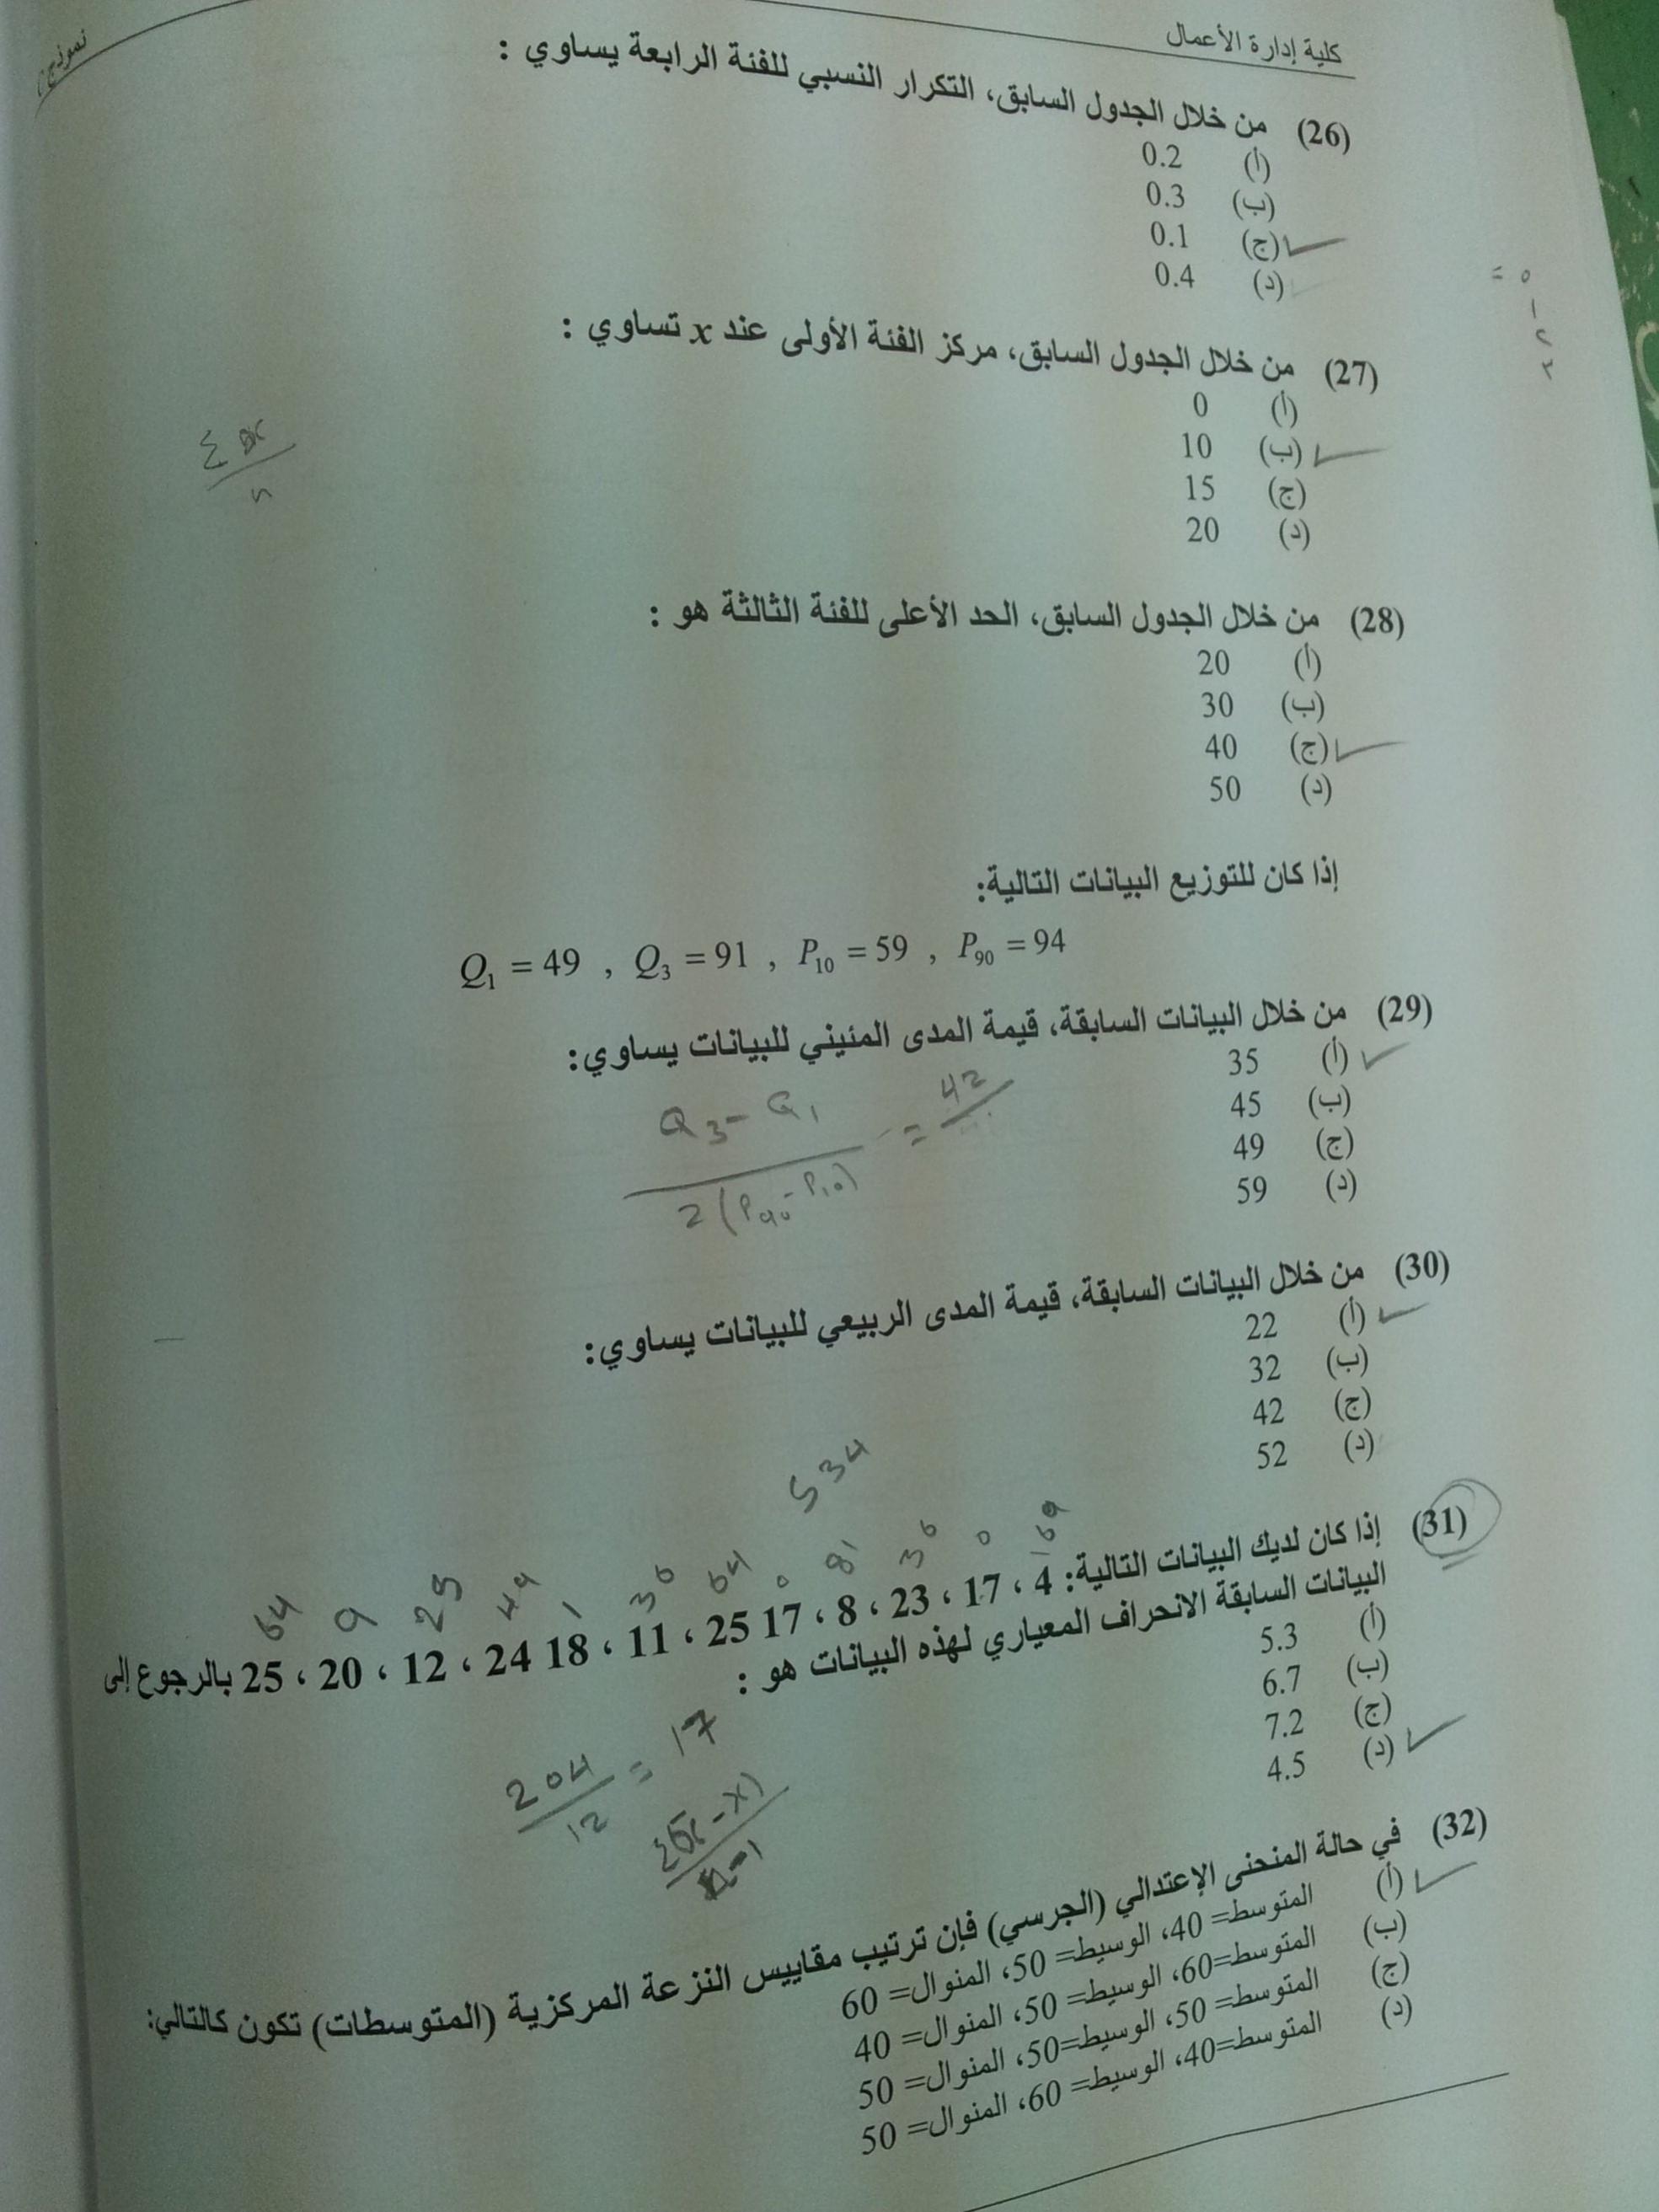 كلية إدارة الأعمال
نموذج(
(26) من خلال الجدول السابق، التكرار النسبي للفئة الرابعة يساوي :
(أ) 0.2
(ب) 0.3
(ج) 0.1
(د) 0.4
(27) من خلال الجدول السابق، مركز الفئة الأولى عند x تساوي :
(أ) 0
(ب) 10
(ج) 15
(د) 20
(28) من خلال الجدول السابق، الحد الأعلى للفئة الثالثة هو :
(أ) 20
(ب) 30
(ج) 40
(د) 50
إذا كان للتوزيع البيانات التالية:
Q₁ = 49 , Q₃ = 91 , P₁₀ = 59 , P₉₀ = 94
(29) من خلال البيانات السابقة، قيمة المدى المئيني للبيانات يساوي:
(أ) 35
(ب) 45
(ج) 49
(د) 59
Q₃ - Q₁ = 42
2 (P₉₀ - P₁₀)
(30) من خلال البيانات السابقة، قيمة المدى الربيعي للبيانات يساوي:
(أ) 22
(ب) 32
(ج) 42
(د) 52
534
169 0 36 81 0 64 36 1 49 25 9 64
(31) إذا كان لديك البيانات التالية: 4 ، 17 ، 23 ، 8 ، 17 25 ، 11 ، 18 24 ، 12 ، 20 ، 25 بالرجوع إلى
البيانات السابقة الانحراف المعياري لهذه البيانات هو :
(أ) 5.3
(ب) 6.7
(ج) 7.2
(د) 4.5
204 = 17
12
n-1
(32) في حالة المنحنى الإعتدالي (الجرسي) فإن ترتيب مقاييس النزعة المركزية (المتوسطات) تكون كالتالي:
(أ) المتوسط= 40، الوسيط= 50، المنوال= 60
(ب) المتوسط=60، الوسيط= 50، المنوال= 40
(ج) المتوسط= 50، الوسيط=50، المنوال= 50
(د) المتوسط=40، الوسيط= 60، المنوال= 50